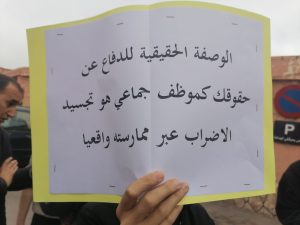 الوصفة الحقيقية للدفاع عن
حقوقك كموظف جماعي هو تجسيد
الاضراب عبر ممارسته واقعيا
P